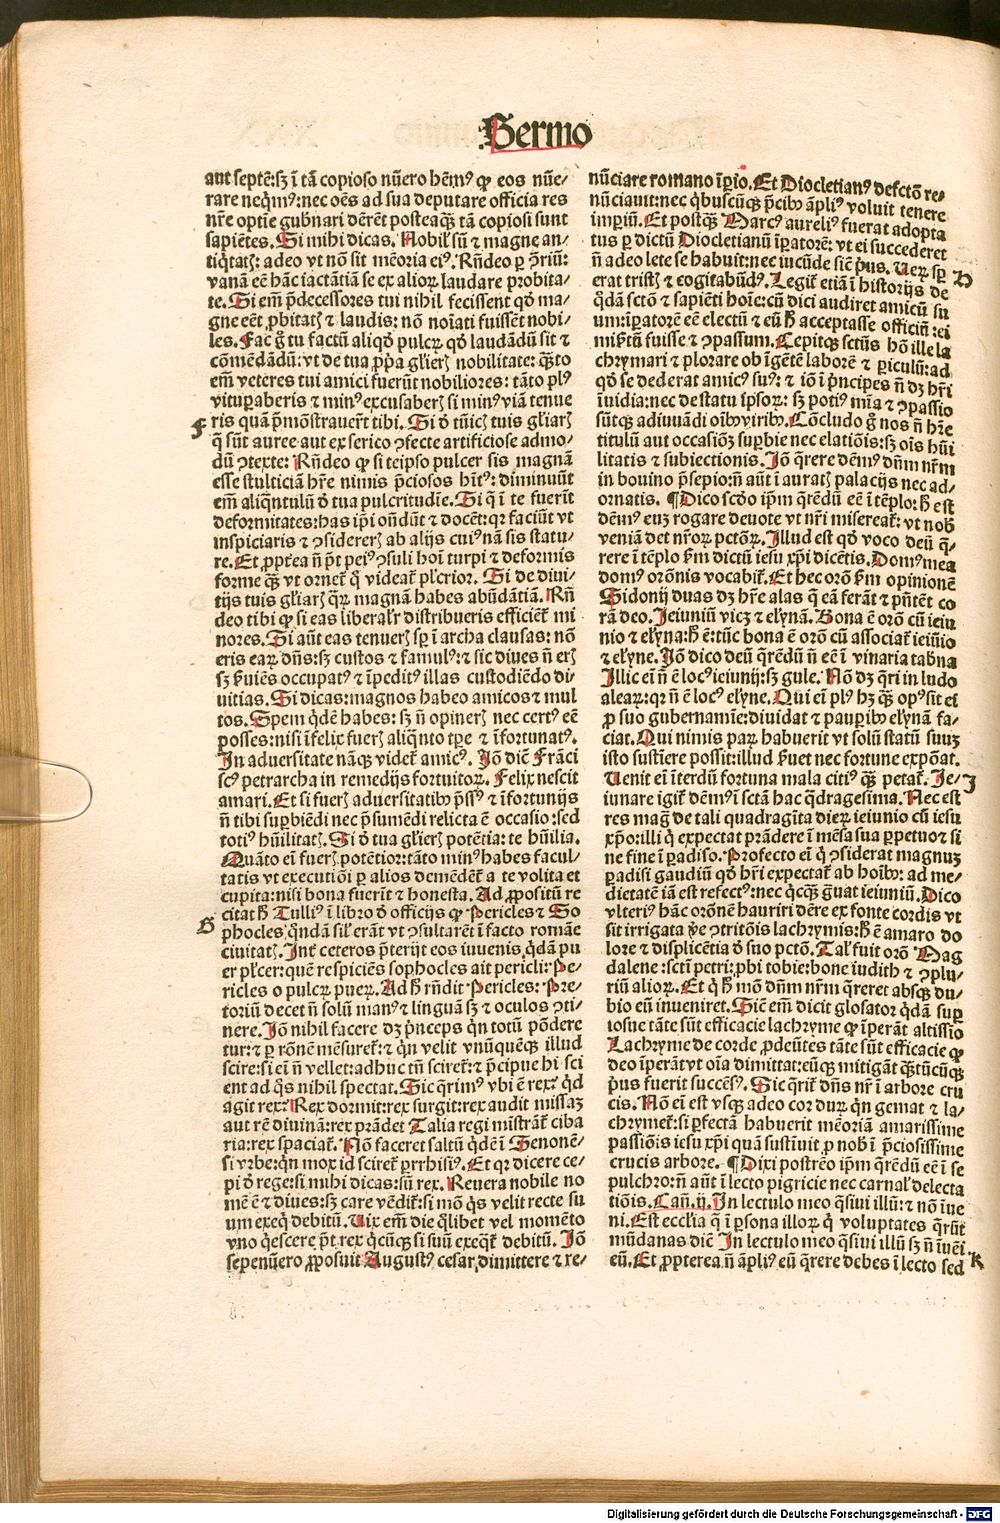 Sermo
aut septē:sꝫ ī tā copioso nūero hēmꝰ ꝙ eos nūe⸗
rare neq̄mꝰ:nec oēs ad sua deputare officia res
nr̄e optīe gub̄nari dēr̄ēt posteaꝙ̄ tā copiosi sunt
sapiētes. Si mihi dicas. Nobił sū ⁊ magne an⸗
tiq̇tatꝭ: adeo vt nō sit mēoria eiꝰ. Rn̄deo ꝑ
vanā eē hāc iactātiā se ex alioꝝ laudare probita⸗
te. Si em̄ p̄decessores tui nihil fecissent qḋ ma⸗
gne eēt ꝓbitatꝭ ⁊ laudis: nō noīati fuissēt nobi⸗
les. Fac g̊ tu factū aliqḋ pulcꝝ qḋ laudādū sit ⁊
cōmēdādū: vt de tua ꝓpa gl̄ierꝭ nobilitate: ꝙ̄to
em̄ veteres tui amici fuerūt nobiliores: tāto plꝰ
vituꝑaberis ⁊ minꝰ excusaberꝭ si minꝰ viā tenue
F ris quā p̄mōstrauer̄t tibi. Si ḋ tūicꝭ tuis gl̄iarꝭ
q̄ sūt auree aut ex serico ꝯfecte artificiose admo⸗
dū ꝯtexte: Rn̄deo ꝙ si teipso pulcer sis magnā
esse stulticiā hr̄e nimis p̄ciosos hītꝰ: diminuūt
em̄ aliq̄ntulū ḋ tua pulcritudīe. Si q̄ ī te fuerīt
deformitates: has ip̄i on̄dūt ⁊ docēt: qꝛ faciūt vt
inspiciaris ⁊ ꝯsidererꝭ ab alijs cuiꝰnā sis statu⸗
re. Et ꝓpt̄ea n̄ p̄t peiꝰ ꝯsuli hoī turpi ⁊ deformis
forme ꝙ̄ vt ornet̄ q̇ videat̄ pl̄crior. Si de diui⸗
tijs tuis gl̄iarꝭ qꝝ magnā habes abūdātiā. Rn̄
deo tibi ꝙ si eas liberal̄r distribueris efficiēt̄ mi
nores. Si aūt eas tenuerꝭ sꝑ ī archa clausas: nō
eris eaꝝ dn̄s: sꝫ custos ⁊ famulꝰ: ⁊ sic diues n̄ erꝭ
sꝫ ꝑuiēs occupatꝰ ⁊ īpeditꝰ illas custodiēdo di⸗
uitias. Si dicas: magnos habeo amicos ⁊ mul
tos. Spem q̇dē habes: sꝫ n̄ opinerꝭ nec certꝰ eē
posses: nisi īfelix fuerꝭ aliq̄nto tꝑe ⁊ īfortunatꝰ.
In aduersitate nāqꝫ videt̄ amicꝰ. Iō diē Frāci
scꝰ petrarcha in remedijs fortuitoꝝ. Felix nescit
amari. Et si fuerꝭ aduersitatibꝰ p̄ssꝰ ⁊ īfortunijs
n̄ tibi suꝑbiēdi nec p̄sumēdi relicta ē occasio: sed
totiꝰ hūilitatꝭ. Si ḋ tua gl̄ierꝭ potētia: te hūilia.
Quāto ei fuerꝭ potētior: tāto minꝰ habes facul⸗
tatis vt executiōi ꝑ alios demēdēt̄ a te volita et
cupita: nisi bona fuerīt ⁊ honesta. Ad ꝓpositū re
citat ħ Tulliꝰ ī libro ḋ officijs ꝙ Pericles ⁊ So
G phocles q̄ndā sil̄ erāt vt ꝯsultarēt ī facto romāe
ciuitatꝭ. Int̄ ceteros p̄terijt eos iuuenis q̇dā pu
er pl̄cer: quē respiciēs sophocles ait pericli: Pe⸗
ricles o pulcꝝ pueꝝ. Ad ħ rn̄dit Pericles: Pre⸗
toriū decet n̄ solū manꝰ ⁊ linguā sꝫ ⁊ oculos ꝯti⸗
nere. Iō nihil facere dꝫ p̄nceps q̇n totū pōdere
tur: ⁊ ꝑ rōnē mēsuret̄: ⁊ q̇n velit vnūquēqꝫ illud
scire: si ei n̄ vellet: adhuc tn̄ sciret̄: ⁊ p̄cipue hi sci
ent ad q̇s nihil spectat. Sic q̄rimꝰ vbi ē rex? q̇d
agit rex? Rex dormit: rex surgit: rex audit missaꝫ
aut rē diuinā: rex prādet Talia regi mistrāt̄ ciba
ria: rex spaciat̄. Nō faceret saltū q̇dē ī Senonē⸗
si vrbe: q̇n mox id sciret̄ ꝑrrhisiꝰ. Et qꝛ dicere ce⸗
pi ḋ rege: si mihi dicas: sū rex. Reuera nobile no
mē ē ⁊ diues: sꝫ care vēdit̄: si mō q̇s velit recte su
um exeq̇ debitū. Vix em̄ die q̄libet vel momēto
vno q̇escere p̄t rex q̇cūqꝫ si suū exeq̇t̄ debitū. Iō
sepenūero ꝓposuit Augustꝰ cesar dimittere ⁊ re⸗
nūciare romano īꝑio. Et Diocletianꝰ defctō re⸗
nūciauit: nec q̇buscūqꝫ p̄cibꝰ āpliꝰ voluit tenere
impiū. Et postꝙ̄ Marcꝰ aureliꝰ fuerat adopta
tus ꝑ dictū Diocletianū īꝑatorē: vt ei succederet
n̄ adeo lete se habuit: nec iucūde siē p̄us. Ueꝝ sꝑ H
erat tristꝭ ⁊ cogitabūdꝰ. Legit̄ etiā ī historijs de
q̇dā sctō ⁊ sapiēti hoīe: cū dici audiret amicū su
um: īꝑatorē eē electū ⁊ eū ħ acceptasse officiū: ei
mir̄tū fuisse ⁊ ꝯpassum. Cepitqꝫ sctūs hō ille la
chrymari ⁊ plorare ob īgētē laborē ⁊ ꝑiculū: ad
qḋ se dederat amicꝰ suꝰ: ⁊ iō ī p̄ncipes n̄ dꝫ hr̄i
īuidia: nec de statu īpsoꝝ: sꝫ potiꝰ mīa ⁊ ꝯpassio
sūtqꝫ adiuuādi oībꝰ viribꝰ. Cōcludo g̊ nos n̄ hr̄e
titulū aut occasiōꝫ suꝑbie nec elatiōis: sꝫ oīs hūi
litatis ⁊ subiectionis. Iō q̄rere dēmꝰ dn̄m nr̄m
in bouino p̄sepio: n̄ aūt ī auratꝭ palacijs nec ad⸗
ornatis. ¶ Dico scḋo ip̄m q̄rēdū eē ī tēplo: ħ est
dēmꝰ euꝫ rogare deuote vt nr̄i misereat̄: vt nobꝭ
veniā det nr̄oꝝ pctōꝝ. Illud est qḋ voco deū q̄⸗
rere ī tēplo ẜm dictū iesu xp̄i dicētis. Domꝰ mea
domꝰ orōnis vocabit̄. Et hec orō ẜm opinionē
Sidonij duas dꝫ hr̄e alas q̄ eā ferāt ⁊ pn̄tēt co
rā deo. Ieiuniū vicꝫ ⁊ elynā. Bona ē orō cū ieiu
nio ⁊ elyna: ħ ē: tūc bona ē orō cū associat̄ ieiūio
⁊ elyne. Iō dico deū q̄rēdū n̄ eē ī vinaria tabna
Illic ei n̄ ē locꝰ ieiunij: sꝫ gule. Nō dꝫ q̄ri in ludo
aleaꝝ: qꝛ n̄ ē locꝰ elyne. Qui ei plꝰ hꝫ ꝙ̄ opꝰ sit ei
ꝓ suo gubernamīe: diuidat ⁊ pauꝑibꝰ elynā fa⸗
ciat. Qui nimis paꝝ habuerit vt solū statū suuꝫ
isto sustīere possit: illud ẜuet nec fortune expōat.
Uenit ei īterdū fortuna mala citiꝰ ꝙ̄ petat̄. Ie⸗ I
iunare igit̄ dēmꝰ ī sctā hac q̄dragesima. Nec est
res mag̅ de tali quadragīta dieꝝ ieiunio cū iesu
xp̄o: illi q̇ expectat prādere ī mēsa sua ꝑpetuo ⁊ si
ne fine ī ꝑadiso. Profecto ei q̇ ꝯsiderat magnuꝫ
ꝑadisi gaudiū qḋ hr̄i expectat̄ ab hoībꝰ: ad me⸗
dietatē iā est refectꝰ: nec q̇cꝙ̄ g̊uat ieiuniū. Dico
vlteriꝰ hāc orōnē hauriri dēre ex fonte cordis vt
sit irrigata ꝟe ꝯtritōis lachrymis: ħ ē amaro do
lore ⁊ displicētia ḋ suo pctō. Tal̄ fuit orō Mag
dalene: scti petri: ꝓbi tobie: bone iudith ⁊ ꝯplu⸗
riū alioꝝ. Et q̇ ħ mō dn̄m nr̄m q̄reret absqꝫ du⸗
bio eū inueniret. Siē em̄ dicit glosator q̇dā suꝑ
iosue tāte sūt efficacie lachryme ꝙ īꝑāt altissīo
Lachryme de corde ꝓdeūtes tāte sūt efficacie ꝙ
deo īꝑāt vt oīa dimittat: eūqꝫ mitigāt ꝙ̄tūcūqꝫ
p̄us fuerit succēsꝰ. Sic q̄rit̄ dn̄s nr̄ ī arbore cru
cis. Nō ei est vsqꝫ adeo cor duꝝ q̇n gemat ⁊ la⸗
chrymet̄: si ꝑfectā habuerit mēoriā amarissime
passiōis iesu xp̄i quā sustīuit ꝓ nobꝭ ī p̄ciosissime
crucis arbore. ¶ Dixi postrēo ip̄m q̄rēdū eē ī se
pulchro: n̄ aūt ī lecto pigricie nec carnal̄ delecta
tiōis. Cān̄. ij. In lectulo meo q̄siui illū: ⁊ nō iue
ni. Est eccl̄ia q̄ ī ꝑsona illoꝝ q̇ voluptates q̄rūt
mūdanas diē In lectulo meo q̄siui illū sꝫ n̄ iuēi
eū. Et ꝓpterea n̄ āpliꝰ eū q̄rere debes ī lecto sed K
Digitalisierung gefördert durch die Deutsche Forschungsgemeinschaft - DFG